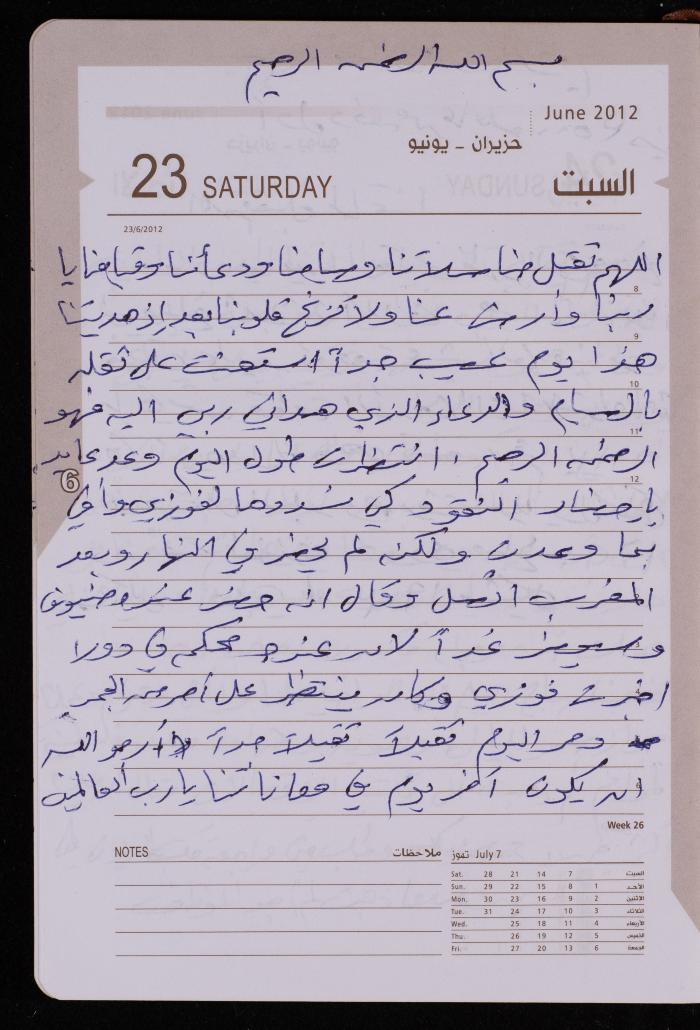 بسم الله الرحمن الرحيم
June 2012
حزيران - يونيو
23 SATURDAY السبت
23/6/2012
اللهم تقبل منا صلاتنا وصيامنا ودعأنا وقيامنا يا
ربنا وارض عنا ولا تزغ قلوبنا بعد إذ هديتنا
هذا يوم عصيب جداً استعنت على ثقله
بالصيام والدعاء الذي هداني ربي اليه فهو
الرحمن الرحيم . انتظرت طول اليوم وعد عابد
6
بإحضار النقود كي نسددها لفوزي وأفي
بما وعدت ولكنه لم يحضر في النهار وبعد
المغرب اتصل وقال انه حضر عنده ضيوف
وسيحضر غداً لانه عنده محكمه في دورا
اخبرت فوزي وكان ينتظر على أحر من الجمر
ومر اليوم ثقيلاً ثقيلاً جداً أرجو الله
ان يكون آخر يوم في معاناتنا يا رب العالمين
Week 26
NOTES ملاحظات
July 7 تموز
Sat. 28 21 14 7 السبت
Sun. 29 22 15 8 1 الأحد
Mon. 30 23 16 9 2 الاثنين
Tue. 31 24 17 10 3 الثلاثاء
Wed. 25 18 11 4 الأربعاء
Thu. 26 19 12 5 الخميس
Fri. 27 20 13 6 الجمعة